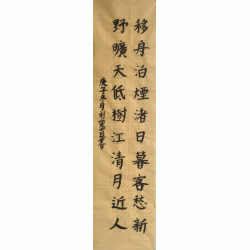 移舟泊煙渚日暮客愁新
野曠天低樹江清月近人
庚子冬月